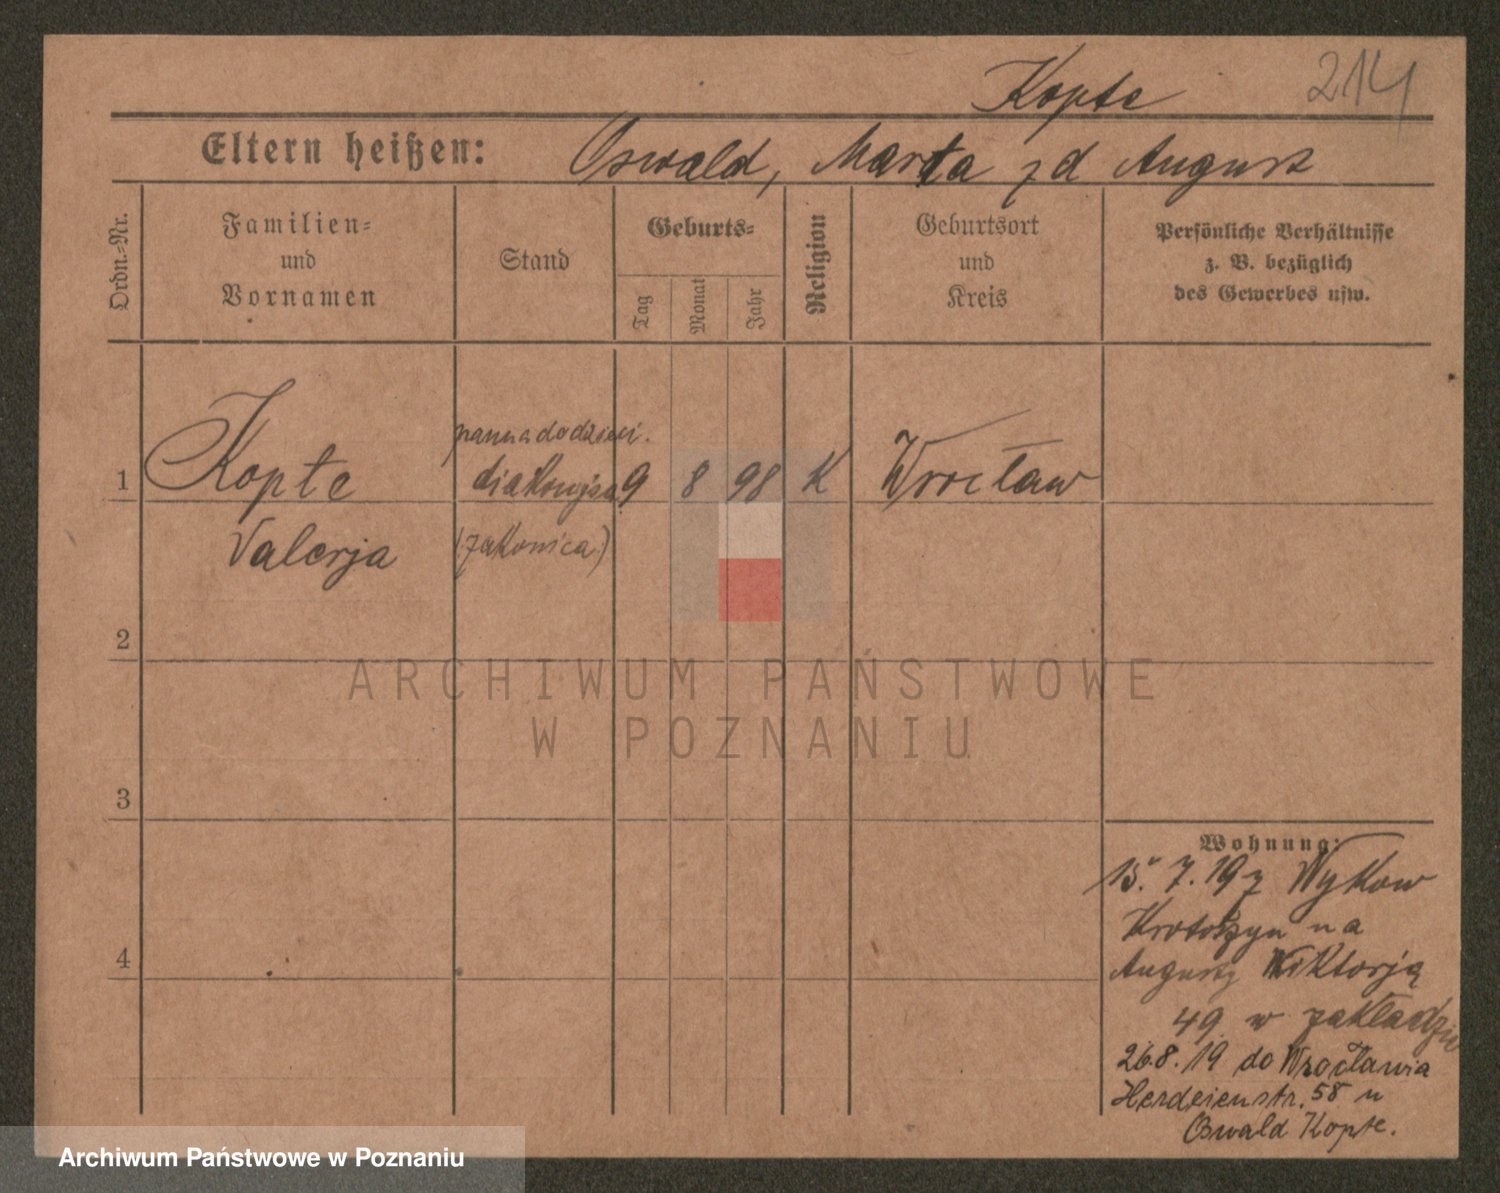 Kopte
214
Eltern heißen: Oswald, Marta zd August
Ordn.-Nr.
Familien-
und
Vornamen
Stand
Geburts-
Tag
Monat
Jahr
Religion
Geburtsort
und
Kreis
Persönliche Verhältnisse
z. B. bezüglich
des Gewerbes usw.
panna do dzieci.
1 Kopte diakonisa 9 8 98 K Wrocław
Valerja (zakonica)
2
ARCHIWUM PAŃSTWOWE
W POZNANIU
3
Wohnung:
15. 7. 19 z Wykow
Krotoszyn na
Augusty Wiktorją
4
49 w zakładzie
26.8.19 do Wrocławia
58 u
Oswald Kopte.
Archiwum Państwowe w Poznaniu